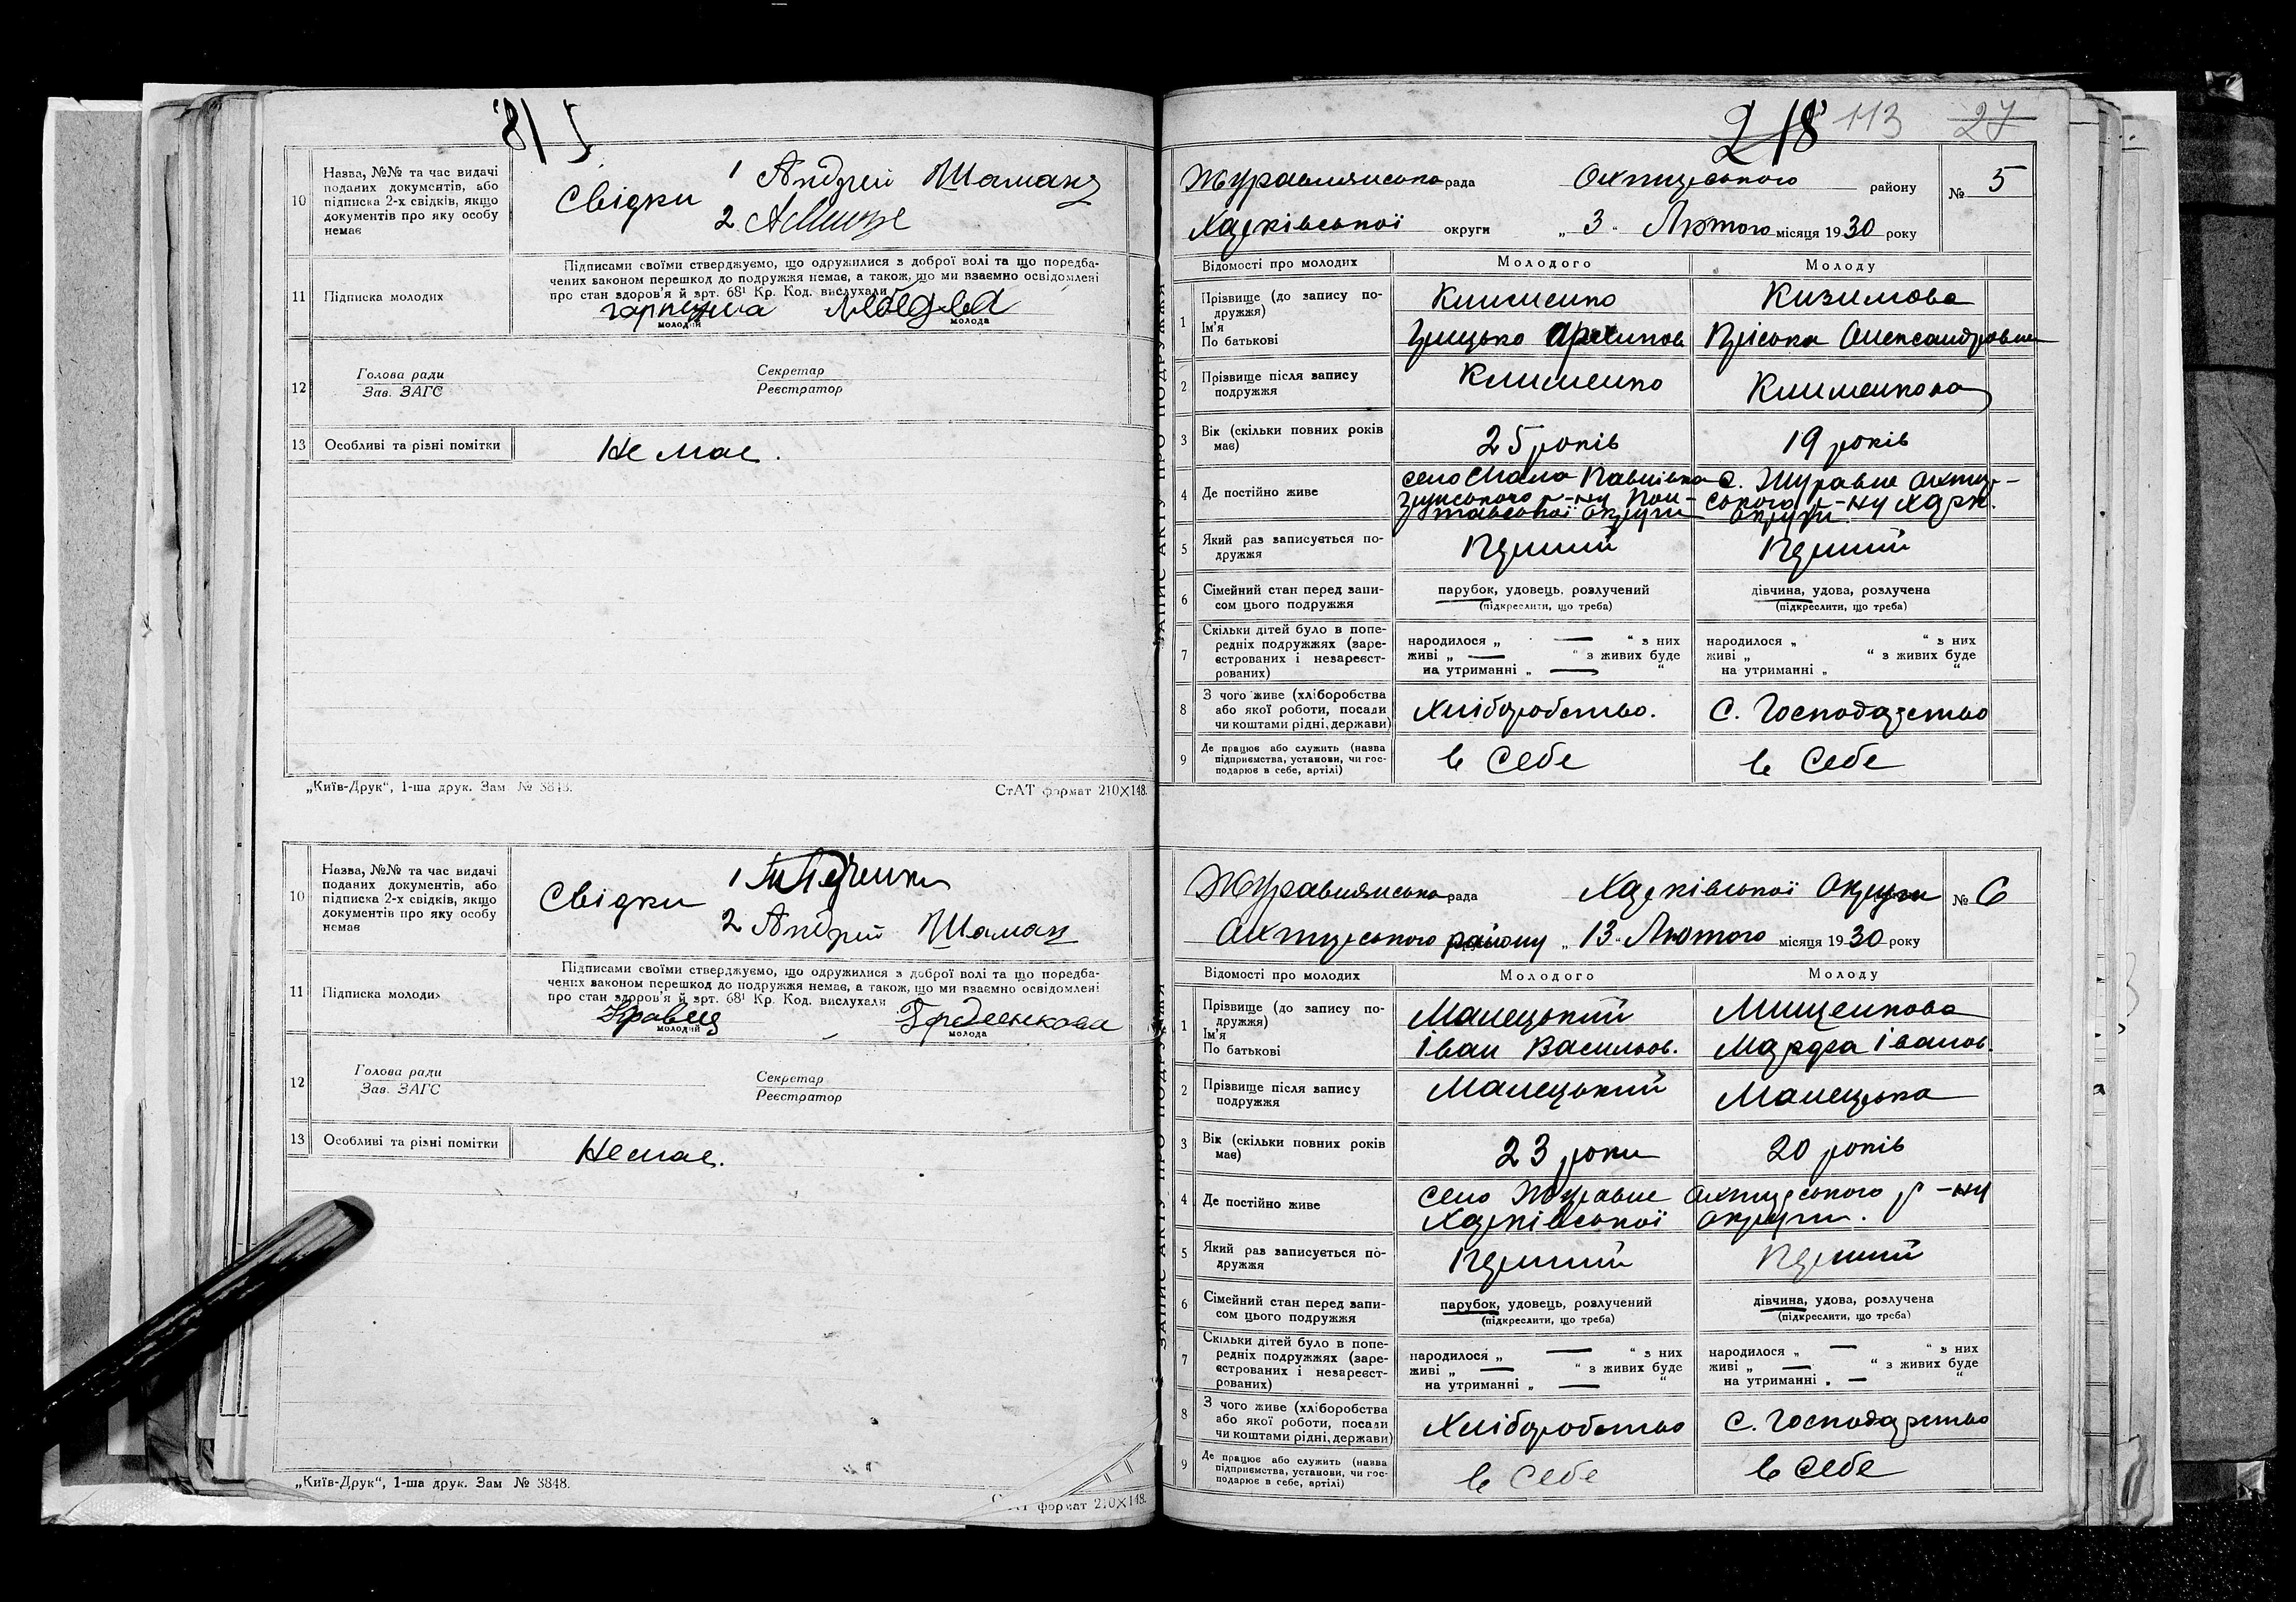 10 Назва, №№ та час видачі
поданих документів, або
підписка 2-х свідків, якщо
документів про яку особу
немає
Свідки 1 Андрій Шаман
2
11 Підписка молодих
Підписами своїми стверджуємо, що одружилися з доброї волі та що поредба-
чених законом перешкод до подружжя немає, а також, що ми взаємно освідомлені
про стан здоров'я й арт. 68¹ Кр. Код. вислухали
молодий молода
12 Голова ради Секретар
Зав. ЗАГС Реєстратор
13 Особливі та різні помітки Не має.
„Київ-Друк“, 1-ша друк. Зам № 3848. СтАТ формат 210×148.
10 Назва, №№ та час видачі
поданих документів, або
підписка 2-х свідків, якщо
документів про яку особу
немає
Свідки 1
2 Андрій Шаман
11 Підписка молодих
Підписами своїми стверджуємо, що одружилися з доброї волі та що поредба-
чених законом перешкод до подружжя немає, а також, що ми взаємно освідомлені
про стан здоров'я й арт. 68¹ Кр. Код. вислухали
Кравец
молодий молода
12 Голова ради Секретар
Зав. ЗАГС Реєстратор
13 Особливі та різні помітки Не має.
„Київ-Друк“, 1-ша друк. Зам № 3848.
формат 210×148.
218 113 27
ЗАПИС АКТУ ПРО ПОДРУЖЖЯ
Журавлянська рада Охтирського району № 5
Харківської округи „ 3 “ Лютого місяця 1930 року
Відомості про молодих Молодого Молоду
1 Прізвище (до запису по-
дружжя) Клименко Кизимова
Ім'я
По батькові Грицько Архипов Пріська Олександровна
2 Прізвище після запису
подружжя Клименко Клименкова
3 Вік (скільки повних років
має) 25 років 19 років
4 Де постійно живе
село Мала Павлівка
Зіньського р-ну Пол-
тавської округи
с. Журавне Охтир-
ського р-ну Харк.
округи.
5 Який раз записується по-
дружжя Перший Перший
6 Сімейний стан перед запи-
сом цього подружжя
парубок, удовець, розлучений дівчина, удова, розлучена
(підкреслити, що треба) (підкреслити, що треба)
7 Скільки дітей було в попе-
редніх подружжях (заре-
єстрованих і незареєст-
рованих)
народилося „ — “ з них народилося „ “ з них
живі „ — “ з живих буде живі „ “ з живих буде
на утриманні „ — “ на утриманні „ “
8 З чого живе (хліборобства
або якої роботи, посади
чи коштами рідні, держави)
Хліборобство. С. Господарство
9 Де працює або служить (назва
підприємства, установи, чи гос-
подарює в себе, артілі)
в себе в себе
ЗАПИС АКТУ ПРО ПОДРУЖЖЯ
Журавлянська рада Харківської Округи № 6
Охтирського району „ 13 “ Лютого місяця 1930 року
Відомості про молодих Молодого Молоду
1 Прізвище (до запису по-
дружжя) Малецький Мищенкова
Ім'я
По батькові Іван Васильов. Марфа Іванов.
2 Прізвище після запису
подружжя Малецький Малецька
3 Вік (скільки повних років
має) 23 роки 20 років
4 Де постійно живе
село Журавне Охтирського р-ну
Харківської округи.
5 Який раз записується по-
дружжя Перший Перший
6 Сімейний стан перед запи-
сом цього подружжя
парубок, удовець, розлучений дівчина, удова, розлучена
(підкреслити, що треба) (підкреслити, що треба)
7 Скільки дітей було в попе-
редніх подружжях (заре-
єстрованих і незареєст-
рованих)
народилося „ — “ з них народилося „ — “ з них
живі „ — “ з живих буде живі „ — “ з живих буде
на утриманні „ — “ на утриманні „ — “
8 З чого живе (хліборобства
або якої роботи, посади
чи коштами рідні, держави)
Хліборобство С. Господарство
9 Де працює або служить (назва
підприємства, установи, чи гос-
подарює в себе, артілі)
в себе в себе